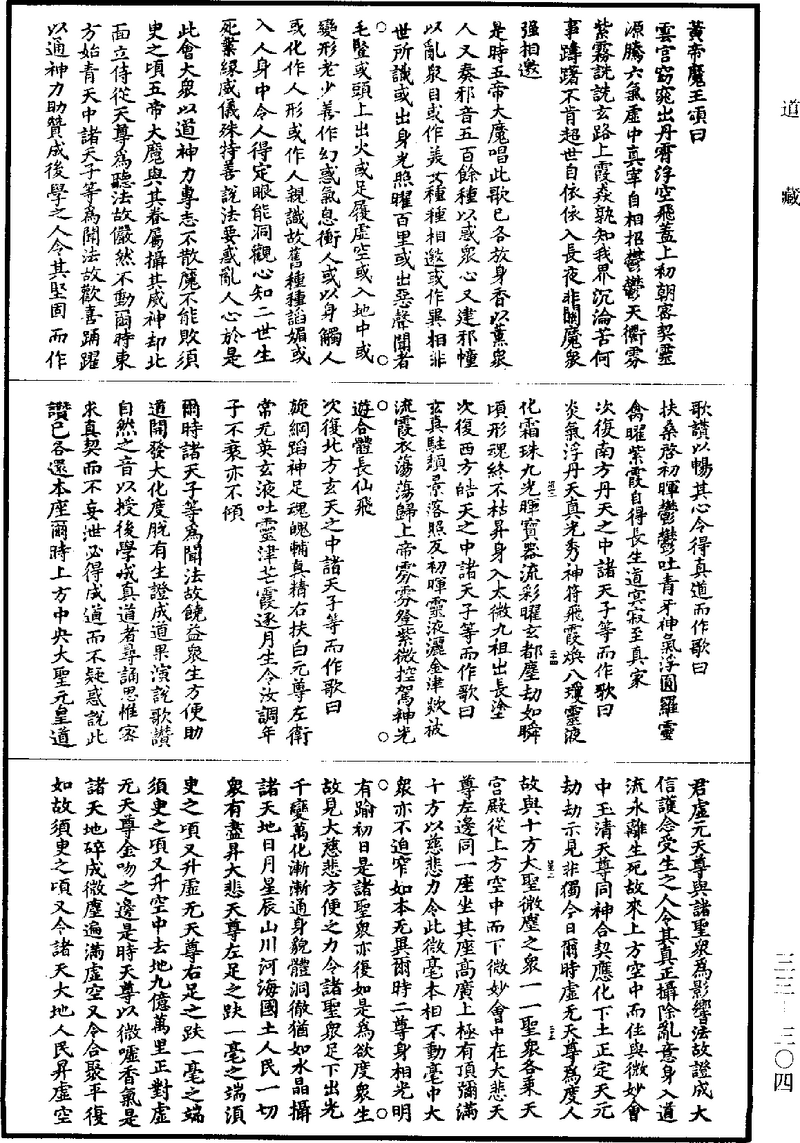 道藏
黃帝魔王頌曰
雲宮窈窕出丹霄浮空飛蓋上初朝密契靈
源騰六氣虛中真宰自相招鬱鬱天衢霧
紫霧詵詵玄路上霞森孰知我界沉淪苦何
事躊躇不肯超世自依依入長夜非關魔衆
强相邀
是時五帝大魔唱此歌已各放身香以薰衆
人又奏邪音五百餘種以惑衆心又建邪幢
以亂衆目或作美女種種相邀或作異相非
世所識或出身光照曜百里或出惡聲聞者
毛豎或頭上出火或足履虛空或入地中或
變形老少善作幻惑氣息衝人或以身觸人
或化作人形或作人親識故舊種種諂媚或
入人身中令人得定眼能洞觀心知二世生
死業緣威儀殊特善說法要惑亂人心於是
此會大衆以道神力專志不散魔不能敗須
臾之頃五帝大魔與其眷屬攝其威神却北
面立侍從天尊為聽法故儼然不動爾時東
方始青天中諸天子等為聞法故歡喜踊躍
以通神力助贊成後學之人令其堅固而作
歌讚以暢其心令得真道而作歌曰
扶桑啓初暉鬱鬱吐青牙神氣浮圓羅靈
禽曜紫霞自得長生道冥寂至真家
次復南方丹天之中諸天子等而作歌曰
炎氣浮丹天真光秀神符飛霞煥八瓊靈液
化霜珠九光暉寶器流彩曜玄都塵劫如瞬
頃形魂終不枯昇身入太微九祖出長塗
次復西方皓天之中諸天子等而作歌曰
玄真駐頹景落照反初暉靈液灑金津欻被
流霞衣蕩蕩歸上帝雰雰登紫微控駕神光
遊合體長仙飛
次復北方玄天之中諸天子等而作歌曰
旋綱蹈神足魂魄輔真精右扶白元尊左衛
常无英玄液吐靈津芒霞逐月生令汝調年
子不衰亦不傾
爾時諸天子等為聞法故饒益衆生方便助
道開發大化度脫有生證成道果演說歌讚
自然之音以授後學成真道者尋誦思惟密
求真契而不妄泄必得成道而不疑惑說此
讚已各還本座爾時上方中央大聖元皇道
君虛元天尊與諸聖衆為影響法故證成大
信護念受生之人令其真正攝除亂意身入道
流永離生死故來上方空中而住與微妙會
中玉清天尊同神合契應化下土正定天元
劫劫示見非獨今日爾時虛无天尊為度人
故與十方大聖微塵之衆一一聖衆各乘天
宮殿從上方空中而下微妙會中在大悲天
尊左邊同一座坐其座高廣上極有頂彌滿
十方以慈悲力令此微毫本相不動毫中大
衆亦不迫窄如本无異爾時二尊身相光明
有踰初日是諸聖衆亦復如是為欲度衆生
故見大慈悲方便之力令諸聖衆足下出光
千變萬化漸漸通身貌體洞徹猶如水晶攝
諸天地日月星辰山川河海國土人民一切
衆有盡昇大悲天尊左足之趺一毫之端須
臾之頃又升虛无天尊右足之趺一毫之端
須臾之頃又升空中去地九億萬里正對虛
无天尊金吻之邊是時天尊以微噓香氣是
諸天地碎成微塵遍滿虛空又令合聚平復
如故須臾之頃又令諸天大地人民昇虛空
三三—三〇四